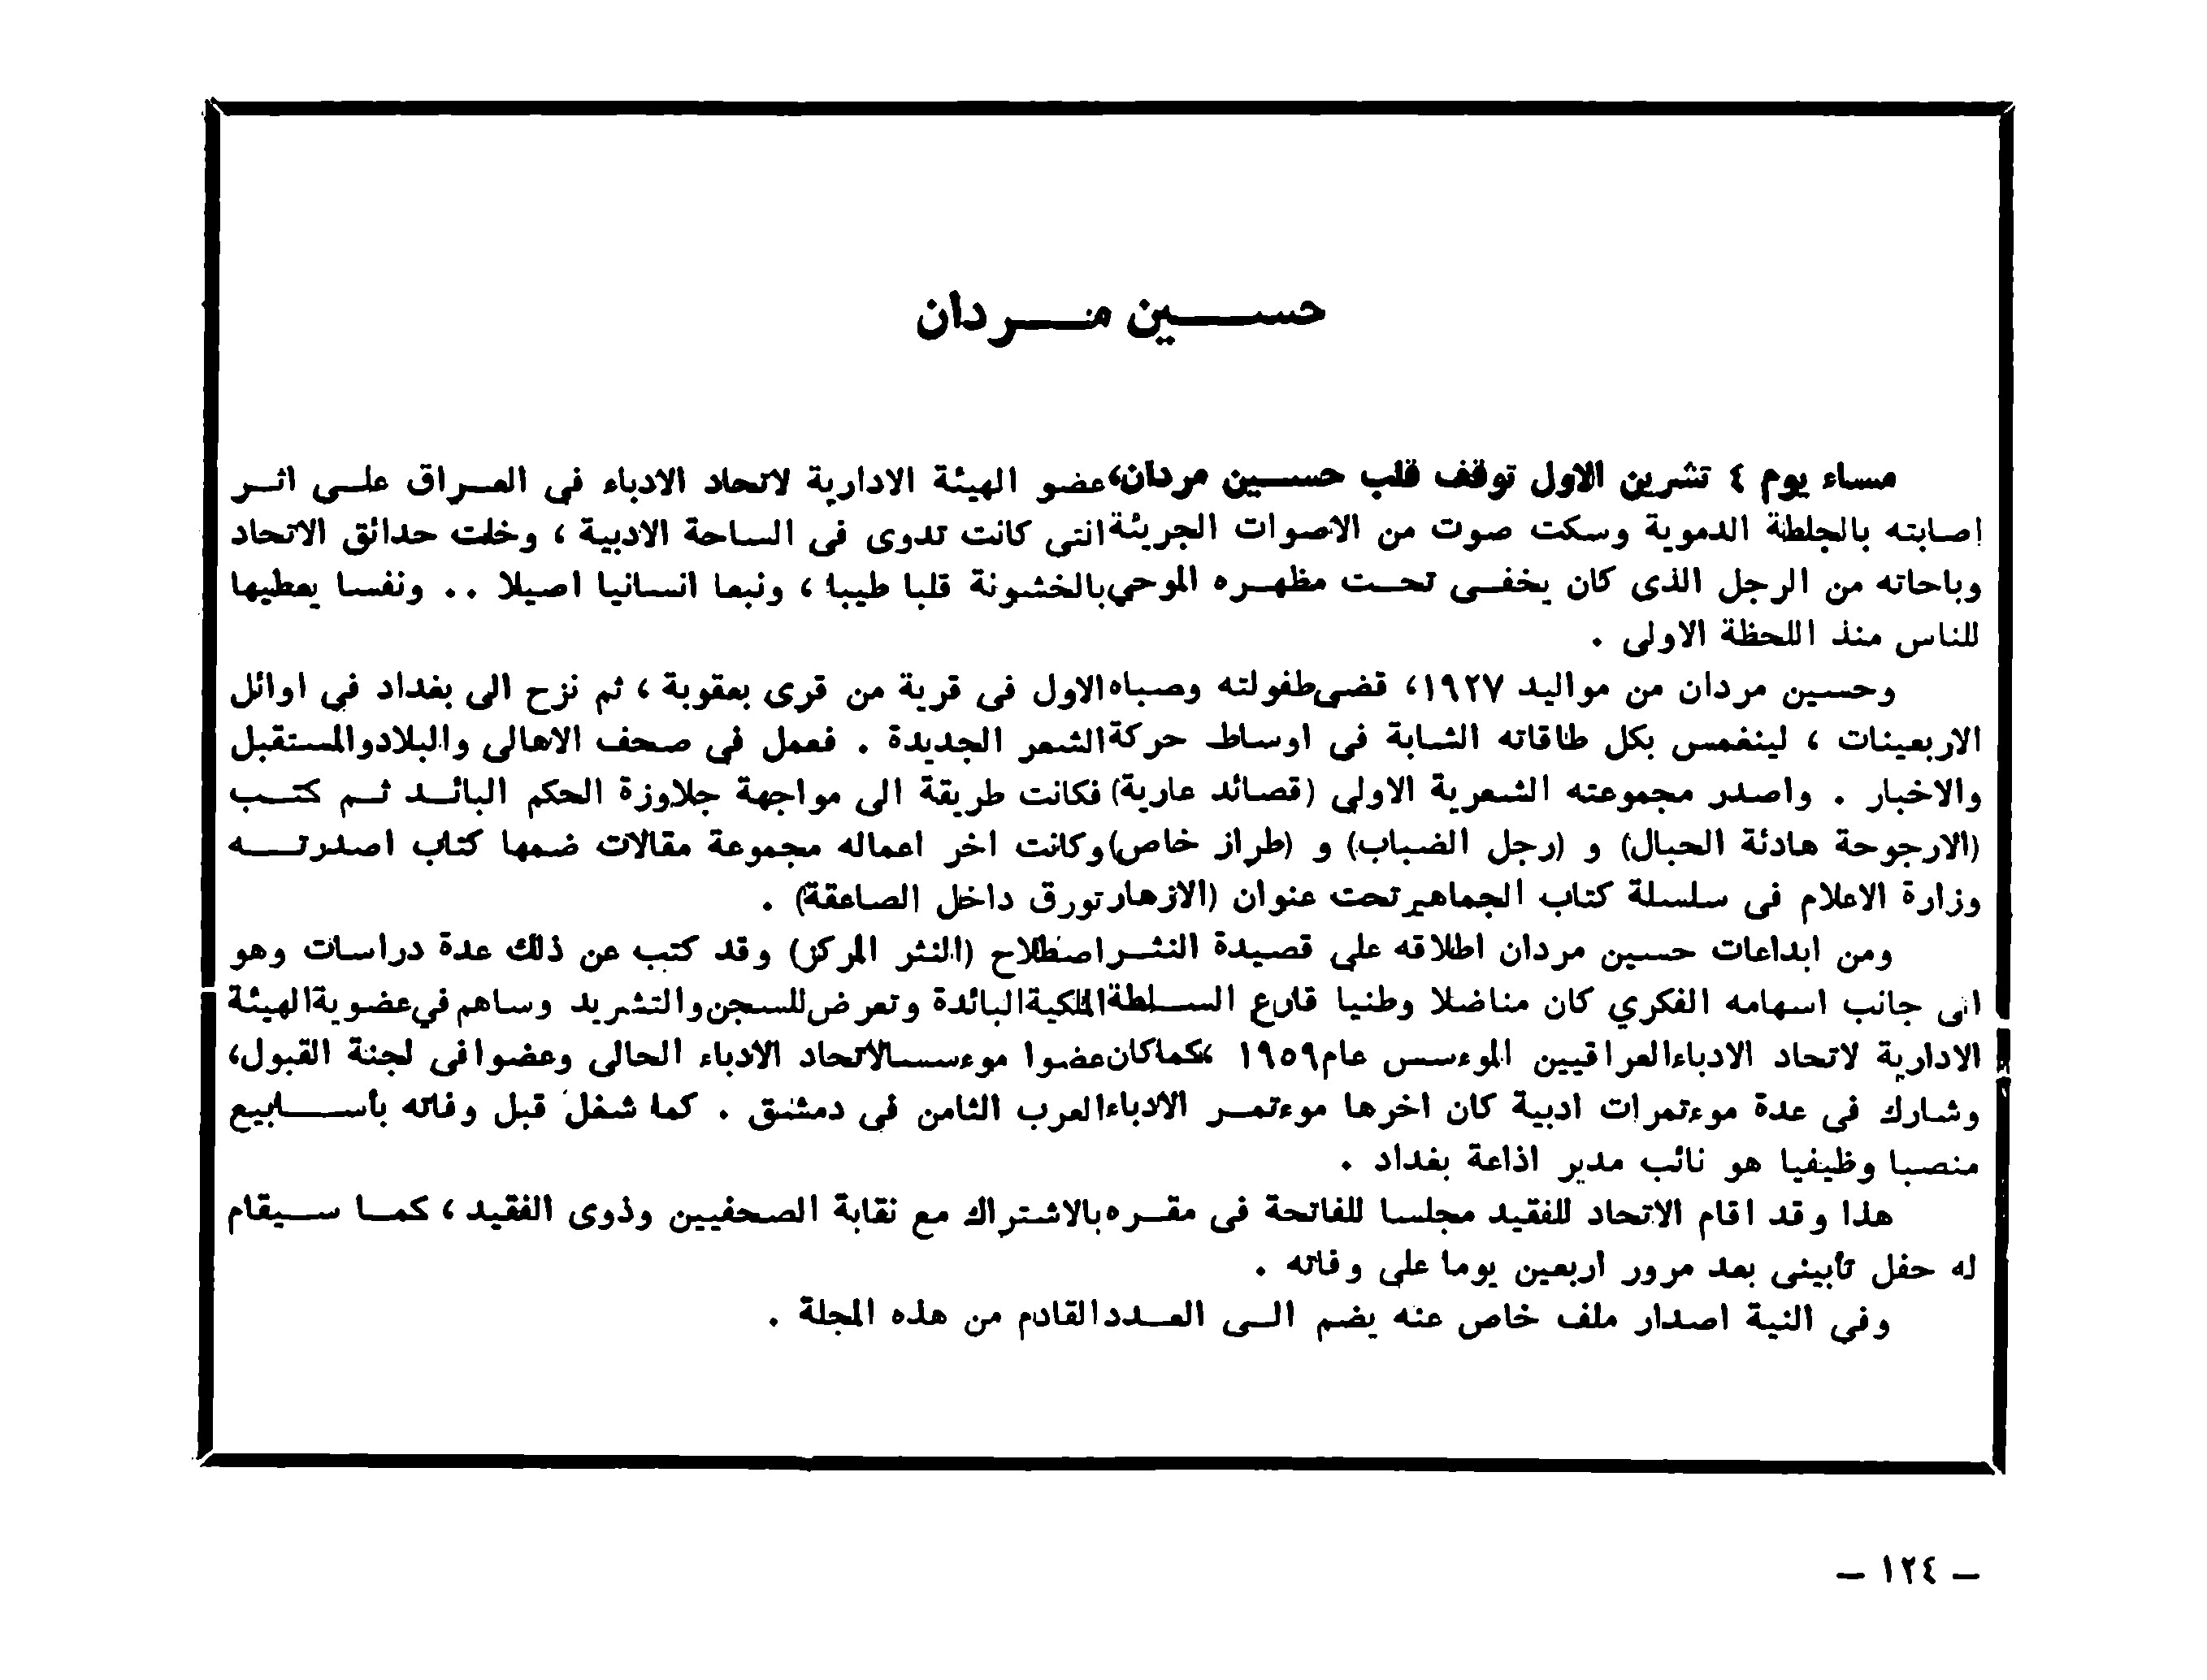 حسين مردان
مساء يوم ٤ تشرين الاول توقف قلب حسين مردان، عضو الهيئة الادارية لاتحاد الادباء في العراق على اثر
اصابته بالجلطة الدموية وسكت صوت من الاصوات الجريئة التي كانت تدوى في الساحة الادبية ، وخلت حدائق الاتحاد
وباحاته من الرجل الذى كان يخفي تحت مظهره الموحي بالخشونة قلبا طيبا ، ونبعا انسانيا اصيلا .. ونفسا يعطيها
للناس منذ اللحظة الاولى .
وحسين مردان من مواليد ١٩٢٧، قضى طفولته وصباه الاول في قرية من قرى بعقوبة ، ثم نزح الى بغداد في اوائل
الاربعينات ، لينغمس بكل طاقاته الشابة في اوساط حركة الشعر الجديدة . فعمل في صحف الاهالي والبلاد والمستقبل
والاخبار . واصدر مجموعته الشعرية الاولى (قصائد عارية) فكانت طريقة الى مواجهة جلاوزة الحكم البائد ثم كتب
(الارجوحة هادئة الحبال) و (رجل الضباب) و (طراز خاص) وكانت اخر اعماله مجموعة مقالات ضمها كتاب اصدرته
وزارة الاعلام في سلسلة كتاب الجماهير تحت عنوان (الازهار تورق داخل الصاعقة) .
ومن ابداعات حسين مردان اطلاقه على قصيدة النثر اصطلاح (النثر المركز) وقد كتب عن ذلك عدة دراسات وهو
الى جانب اسهامه الفكري كان مناضلا وطنيا قارع السلطة الملكية البائدة وتعرض للسجن والتشريد وساهم في عضوية الهيئة
الادارية لاتحاد الادباء العراقيين الموءسس عام ١٩٥٩ ،كما كان عضوا موءسسا لاتحاد الادباء الحالي وعضوا في لجنة القبول،
وشارك في عدة موءتمرات ادبية كان اخرها موءتمر الادباء العرب الثامن في دمشق . كما شغل قبل وفاته بأسابيع
منصبا وظيفيا هو نائب مدير اذاعة بغداد .
هذا وقد اقام الاتحاد للفقيد مجلسا للفاتحة في مقره بالاشتراك مع نقابة الصحفيين وذوى الفقيد ، كما سيقام
له حفل تأبيني بعد مرور اربعين يوما على وفاته .
وفي النية اصدار ملف خاص عنه يضم الى العدد القادم من هذه المجلة .
– ١٢٤ –